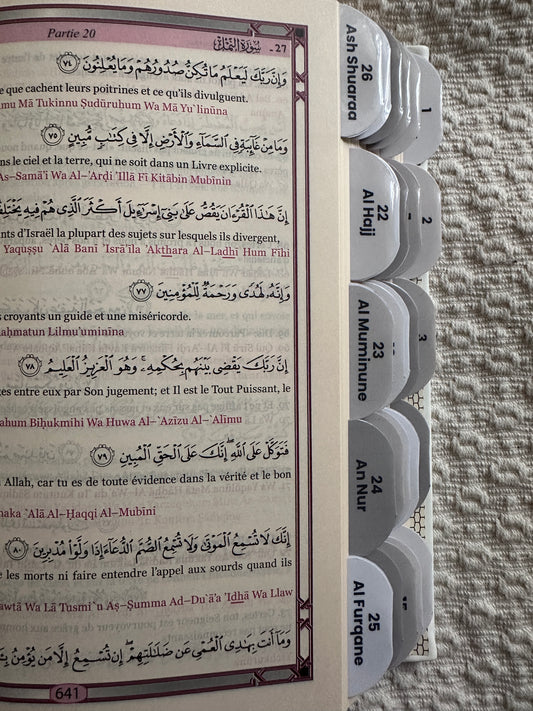 Partie 20
سُورَةُ النَّمْلِ 27 -
وَإِنَّ رَبَّكَ لَيَعْلَمُ مَا تُكِنُّ صُدُورُهُمْ وَمَا يُعْلِنُونَ ٧٤
e que cachent leurs poitrines et ce qu'ils divulgent.
mu Mā Tukinnu Şudūruhum Wa Mā Yu`linūna
وَمَا مِنْ غَآئِبَةٍ فِى ٱلسَّمَآءِ وَٱلْأَرْضِ إِلَّا فِى كِتَٰبٍ مُّبِينٍ ٧٥
ns le ciel et la terre, qui ne soit dans un Livre explicite.
As-Samā'i Wa Al-'Arđi 'Illā Fī Kitābin Mubīnin
إِنَّ هَٰذَا ٱلْقُرْءَانَ يَقُصُّ عَلَىٰ بَنِىٓ إِسْرَٰٓءِيلَ أَكْثَرَ ٱلَّذِى هُمْ فِيهِ
nts d'Israël la plupart des sujets sur lesquels ils divergent,
Yaquşşu `Alá Banī 'Isrā'īla 'Akthara Al-Ladhī Hum Fīhi
وَإِنَّهُۥ لَهُدًى وَرَحْمَةٌ لِّلْمُؤْمِنِينَ ٧٧
croyants un guide et une miséricorde.
aĥmatun Lilmu'uminīna
إِنَّ رَبَّكَ يَقْضِى بَيْنَهُم بِحُكْمِهِۦ وَهُوَ ٱلْعَزِيزُ ٱلْعَلِيمُ ٧٨
es entre eux par Son jugement; et Il est le Tout Puissant, le
ahum Biĥukmihi Wa Huwa Al-`Azīzu Al-`Alīmu
فَتَوَكَّلْ عَلَى ٱللَّهِ إِنَّكَ عَلَى ٱلْحَقِّ ٱلْمُبِينِ ٧٩
Allah, car tu es de toute évidence dans la vérité et le bon
naka `Alá Al-Ĥaqqi Al-Mubīni
إِنَّكَ لَا تُسْمِعُ ٱلْمَوْتَىٰ وَلَا تُسْمِعُ ٱلصُّمَّ ٱلدُّعَآءَ إِذَا وَلَّوْا۟ مُدْبِرِينَ ٨٠
e les morts ni faire entendre l'appel aux sourds quand ils
awtá Wa Lā Tusmi`u Aş-Şumma Ad-Du`ā'a 'Idhā Wa Llaw
وَمَآ أَنتَ بِهَٰدِى ٱلْعُمْىِ عَن ضَلَٰلَتِهِمْ إِن تُسْمِعُ إِلَّا مَن يُؤْمِنُ
641
26
Ash Shuaraa
22
Al Hajj
23
Al Muminune
24
An Nur
25
Al Furqane
1
2
3